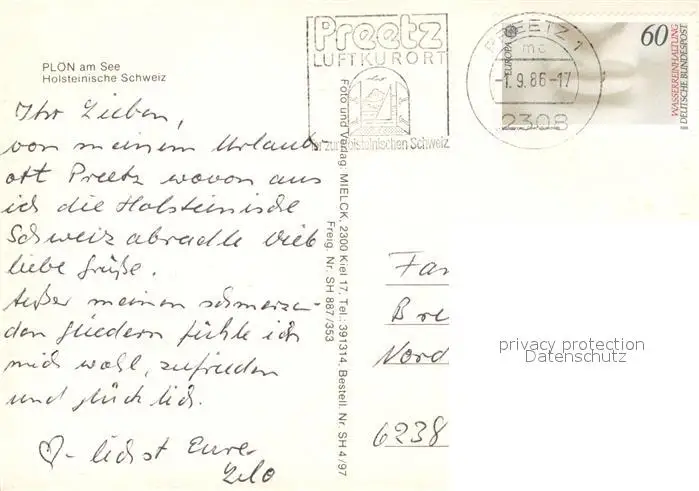 PLÖN am See
Holsteinische Schweiz
Ihr Lieben,
von meinem Urlaubs-
ort Preetz wovon aus
ich die Holsteinische
Schweiz abradle viele
liebe Grüße.
Außer meinen schmerzen-
den Gliedern fühle ich
mich wohl, zufrieden
und glücklich.
♡-lichst Eure
Foto und Verlag: MIELCK, 2300 Kiel 17, Tel.: 391314, Bestell. Nr. SH 4/97
Freig. Nr. SH 887/353
Preetz
LUFTKURORT
zur Holsteinischen Schweiz
PREETZ 1
mc
-1.9.86-17
2308
EUROPA
60
WASSERREINHALTUNG
DEUTSCHE BUNDESPOST
Fa
Bre
Nord
6238
privacy protection
Datenschutz